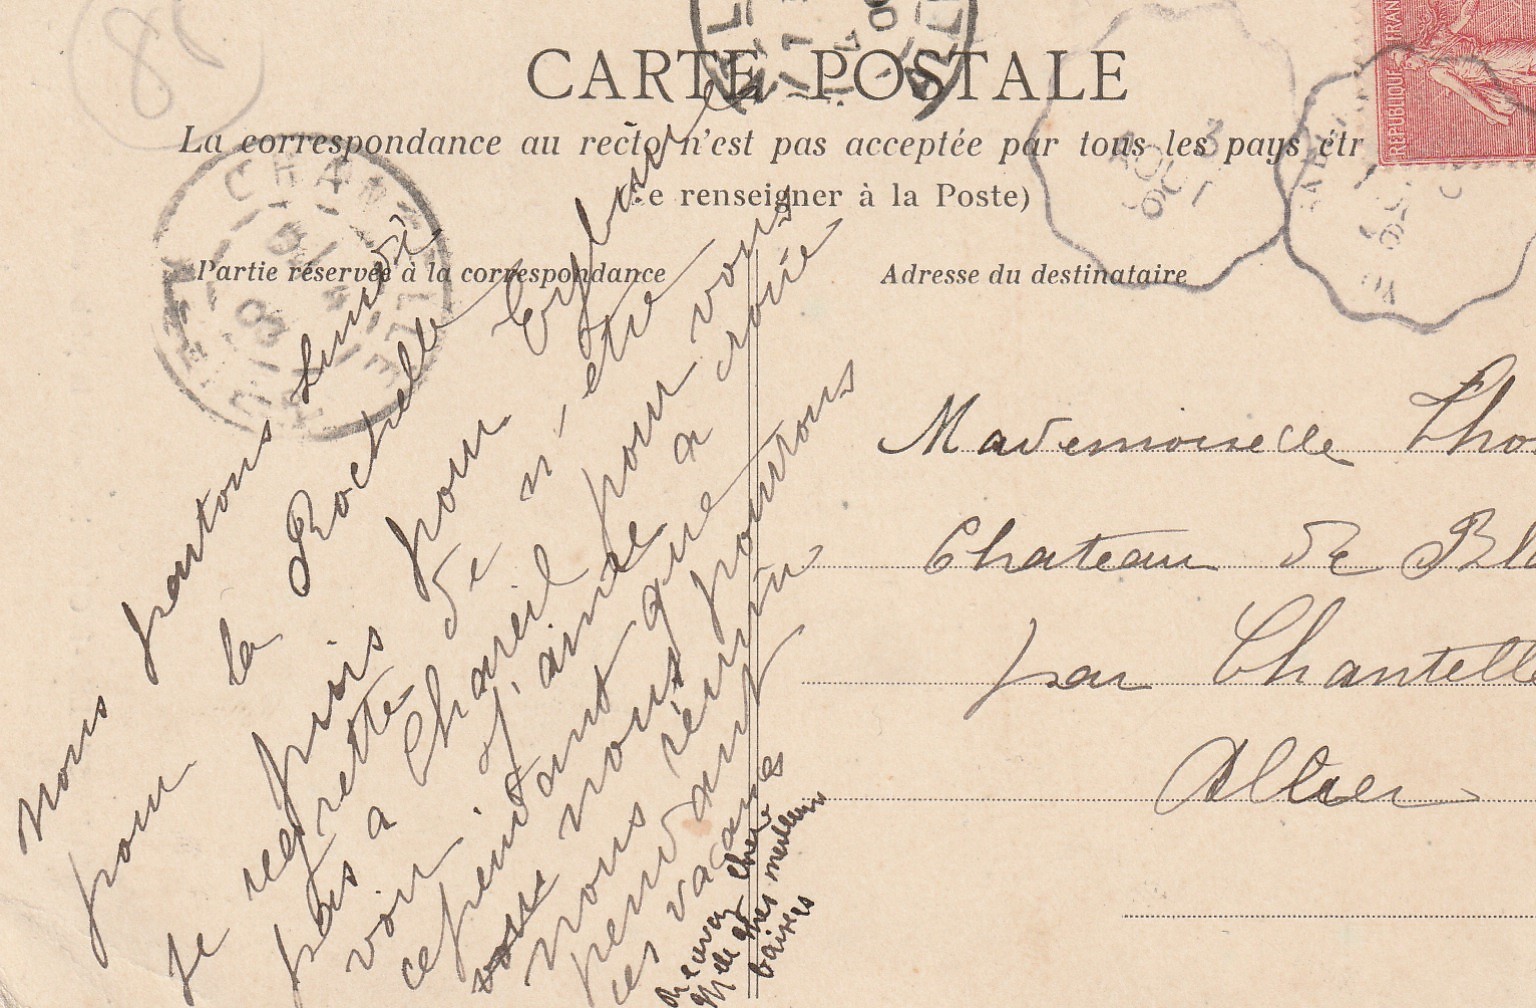 CARTE POSTALE
La correspondance au recto n'est pas acceptée par tous les pays étr
Se renseigner à la Poste)
Partie réservée à la correspondance
Adresse du destinataire
RÉPUBLIQUE FRAN
3
AOUT
06
85
CHANTELLE
Nous partons lundi
pour la Rochelle
puis pour
Je regrette de n'être
pas à Chareil pour vous
voir j'aime à croire
cependant que
nous pourrons
nous réunir
pendant
ces vacances
Recevez chère
Mlle mes meilleurs
baisers
Mademoiselle Tho
Chateau de Bl
par Chantelle
Allier